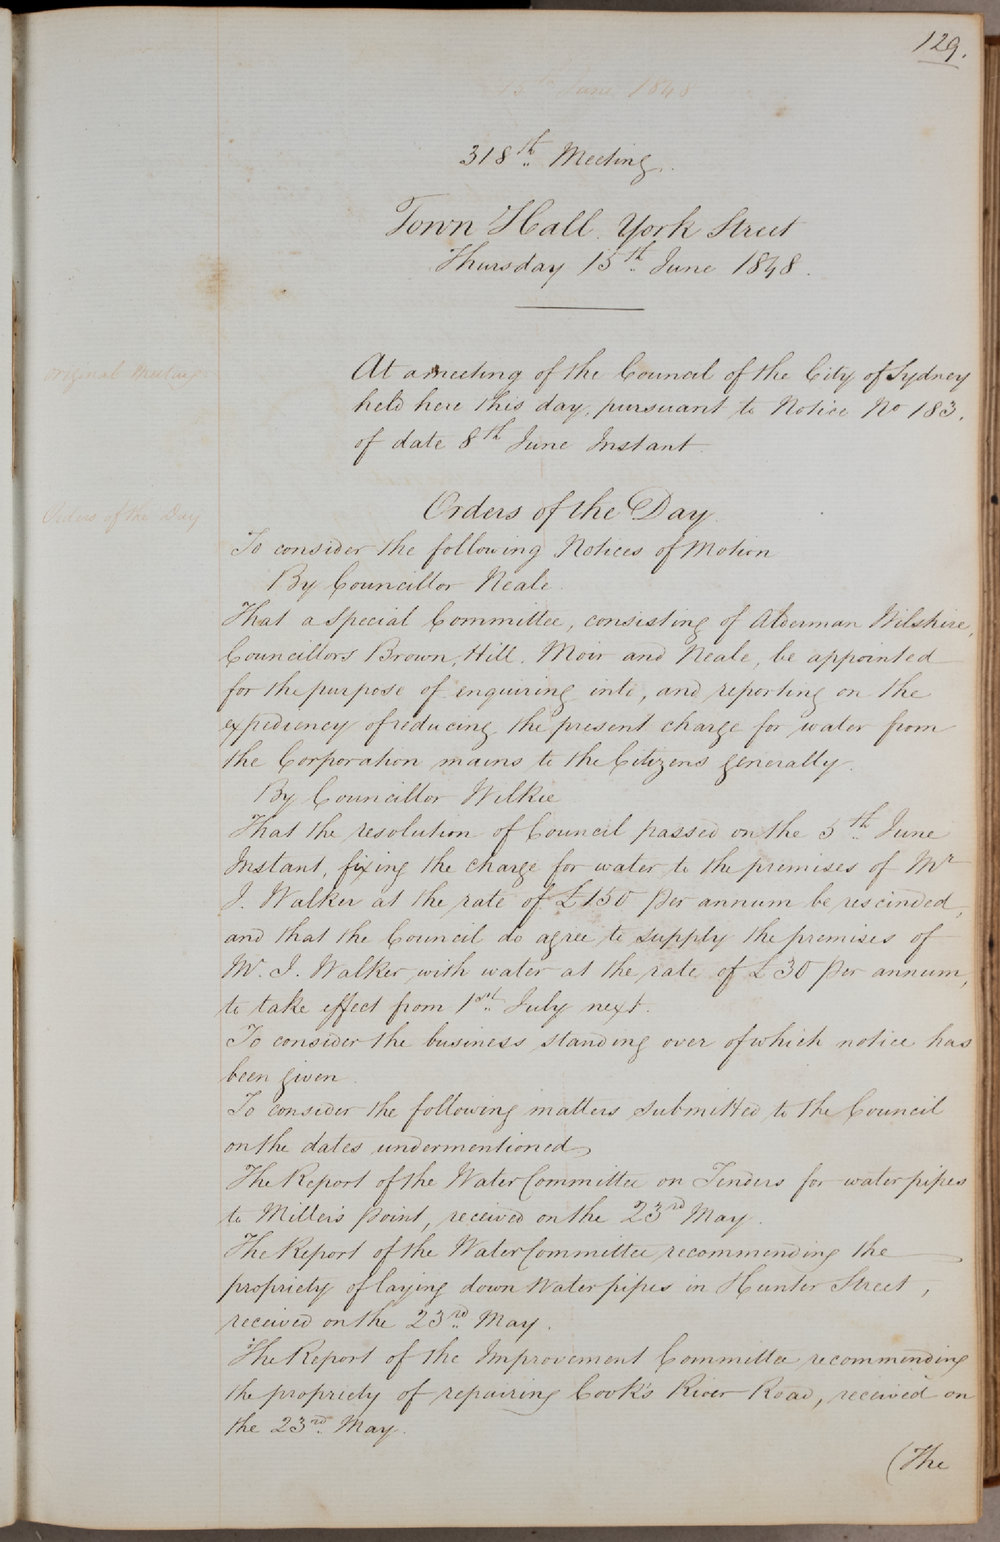 129.
15th June 1848
318th Meeting.
Town Hall. York Street
Thursday 15th June 1848.
Original Meeting
At a meeting of the Council of the City of Sydney
held here this day, pursuant to Notice No 183.
of date 8th June Instant.
Orders of the Day
Orders of the Day.
To consider the following Notices of Motion
By Councillor Neale.
That a Special Committee, consisting of Alderman Wilshire,
Councillors Brown, Hill. Moir and Neale, be appointed
for the purpose of enquiring into, and reporting on the
expediency of reducing the present charge for water from
the Corporation mains to the Citizens generally.
By Councillor Wilkie
That the resolution of Council passed on the 5th June
Instant, fixing the charge for water to the premises of Mr
J. Walker at the rate of £150 per annum be rescinded,
and that the Council do agree to supply the premises of
Mr. J. Walker with water at the rate of £30 per annum,
to take effect from 1st July next.
To consider the business standing over of which notice has
been given.
To consider the following matters submitted to the Council
on the dates undermentioned
The Report of the Water Committee on Tenders for water pipes
to Miller's Point, received on the 23rd May.
The Report of the Water Committee recommending the
propriety of laying down Water pipes in Hunter Street,
received on the 23rd May.
The Report of the Improvement Committee recommending
the propriety of repairing Cook's River Road, received on
the 23rd May.
(The